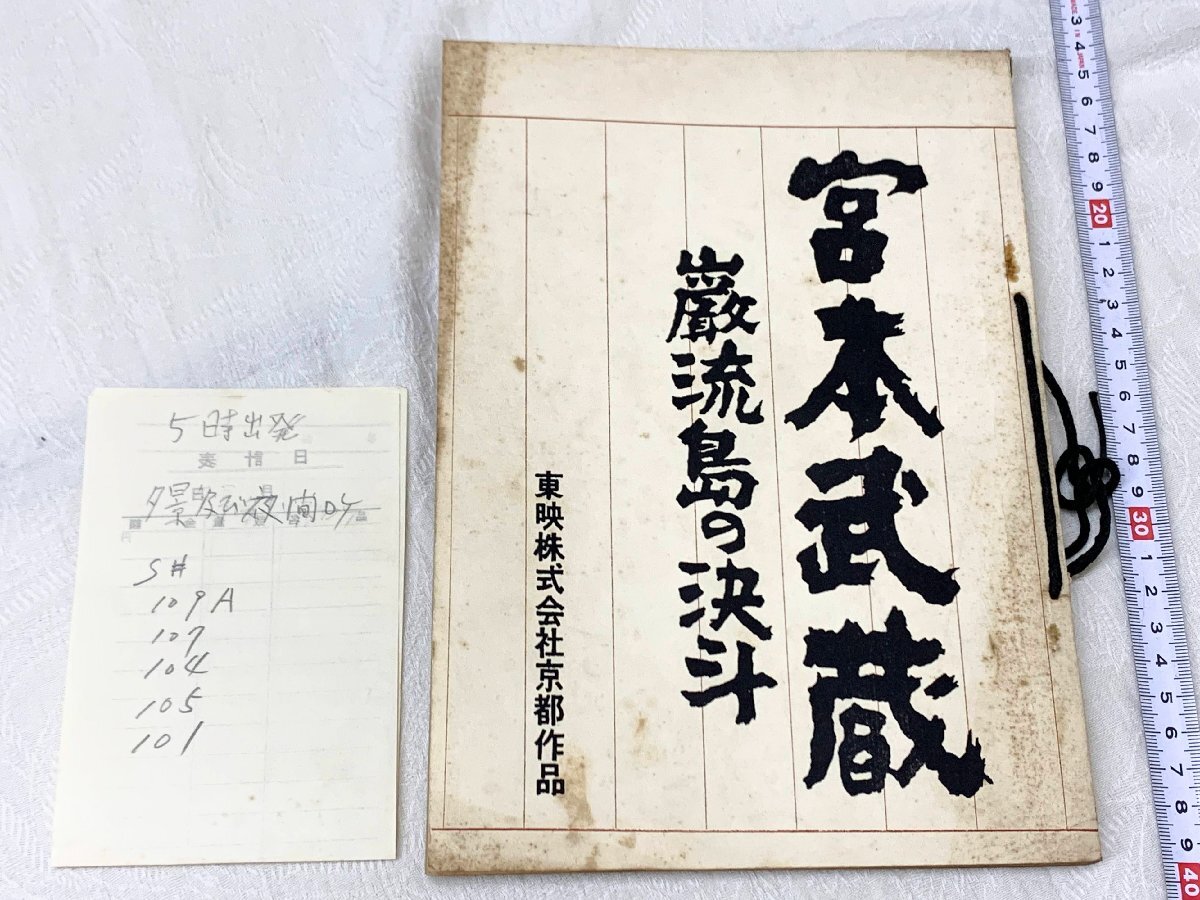 宮本武蔵
巌流島の決斗
東映株式会社京都作品
5時出発
夕景及び夜間ロケ
S#
109A
107
104
105
101
3 4 5 6 7 8 9 20 1 2 3 4 5 6 7 8 9 30 1 2 3 4 5 6 7 8 9 40